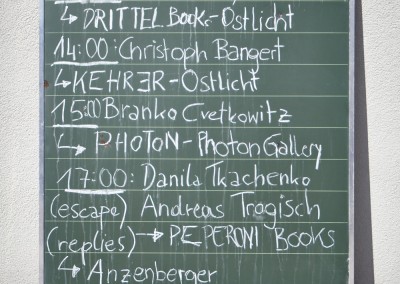 ↳ DRITTEL Books - Ostlicht
14:00: Christoph Bangert
↳ KEHRER - Ostlicht
15:00 Branko Cvetkowitz
↳ PHOTON - Photon Gallery
17:00: Danila Tkachenko
(escape) Andreas Tragisch
(replies) → PEPERONI BOOKS
↳ Anzenberger